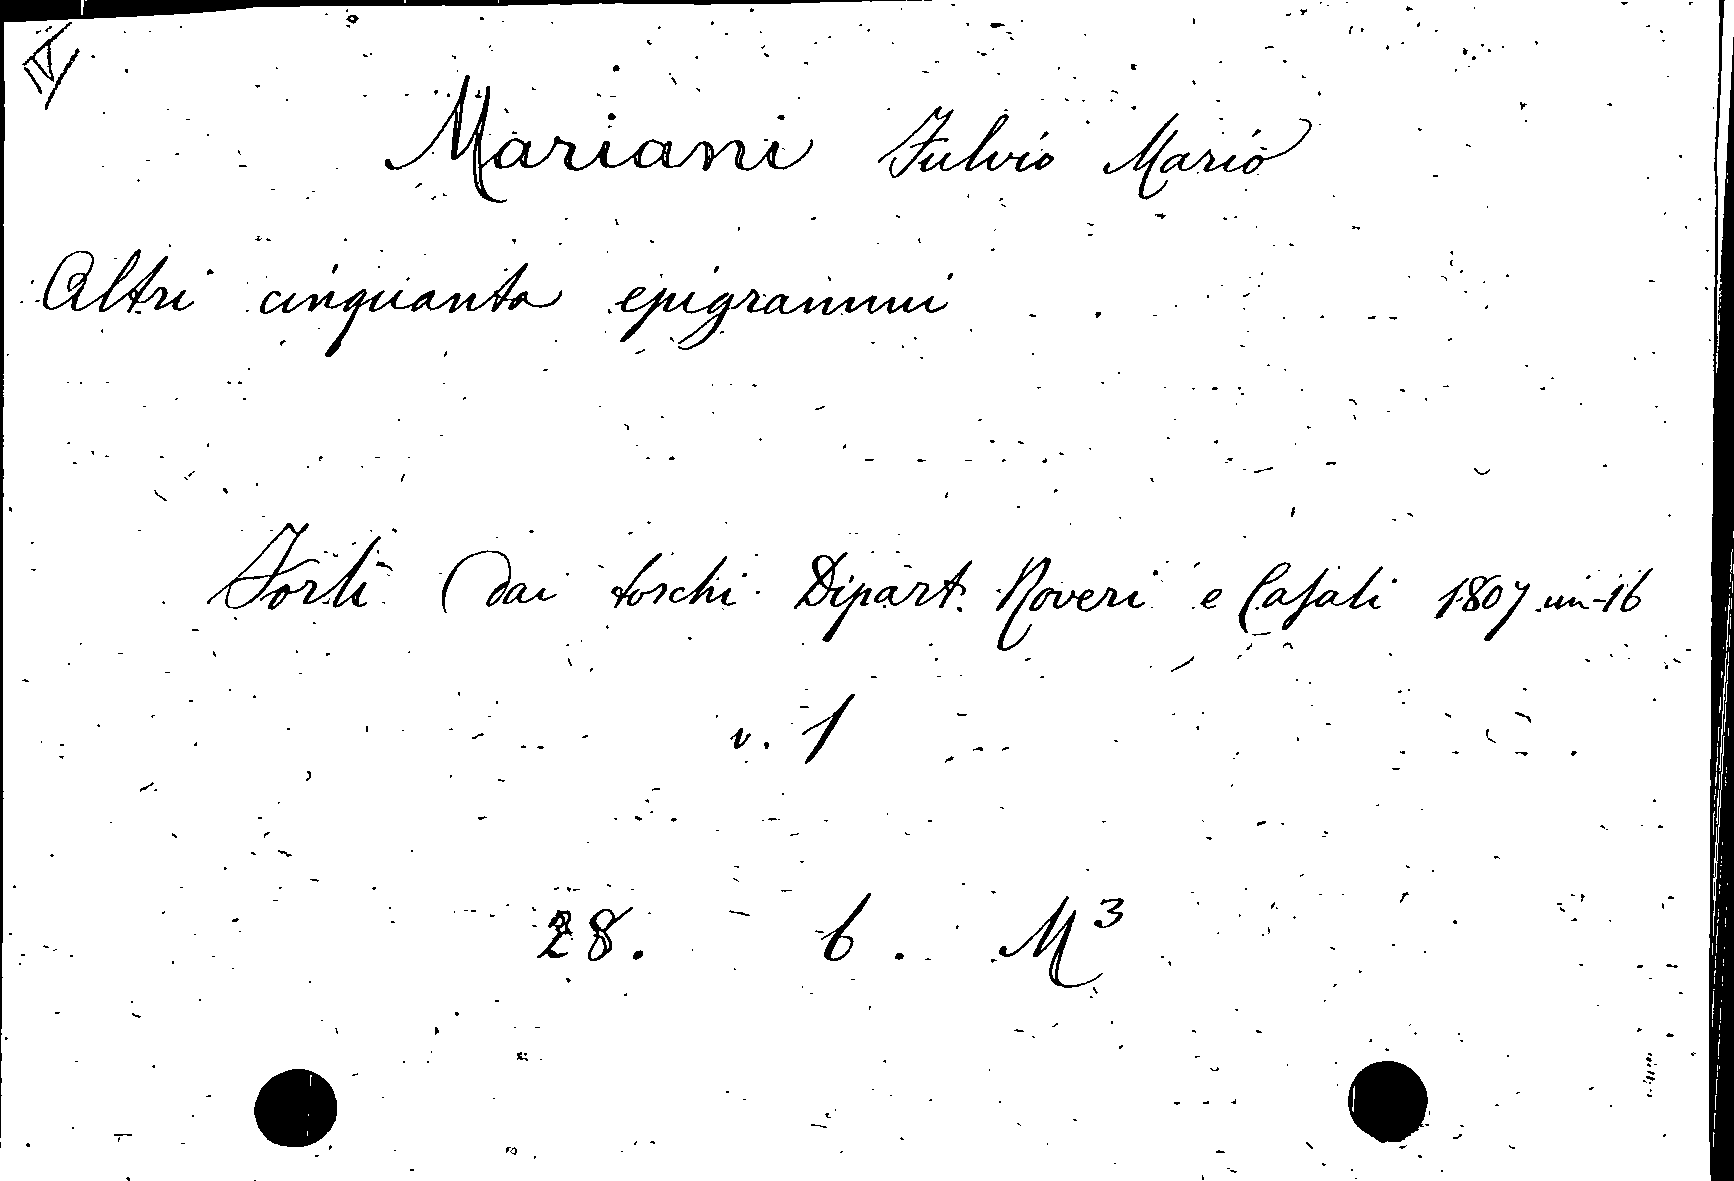 IV
Mariani Fulvio Mario
Altri cinquanta epigrammi
Forlì Dai torchi Dipart. Roveri e Casali 1807 in-16
v. 1
28. 6. M³